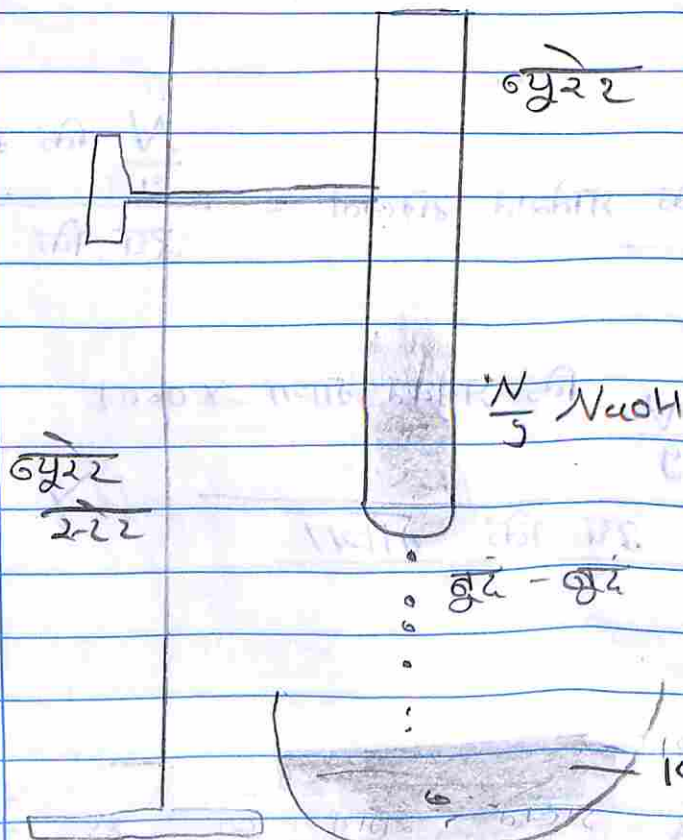 ब्यूरेट
N/5 NaOH
ब्यूरेट
स्टैंड
बूंद - बूंद